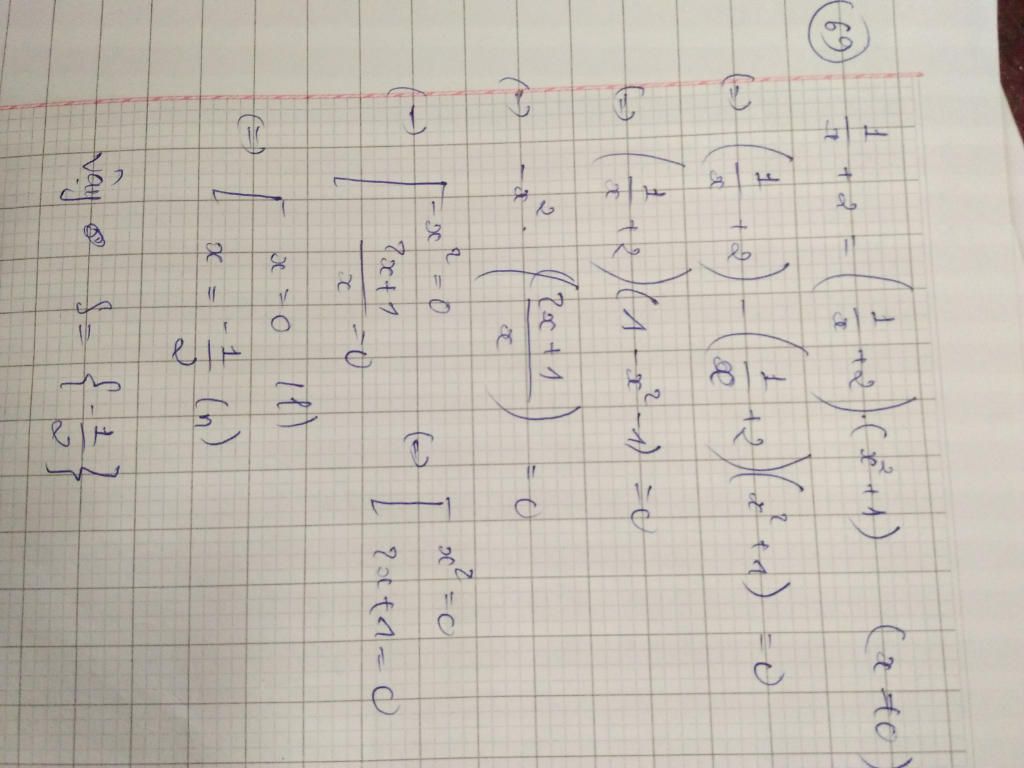 69
1/x + 2 = (1/x + 2).(x² + 1) (x ≠ 0)
(=) (1/x + 2) - (1/x + 2)(x² + 1) = 0
(=) (1/x + 2)(1 - x² - 1) = 0
(=) -x². (2x + 1 / x) = 0
(=) [ -x² = 0 (=) [ x² = 0
2x + 1 / x = 0 2x + 1 = 0
(=) [ x = 0 (l)
x = -1/2 (n)
Vậy S = { -1/2 }